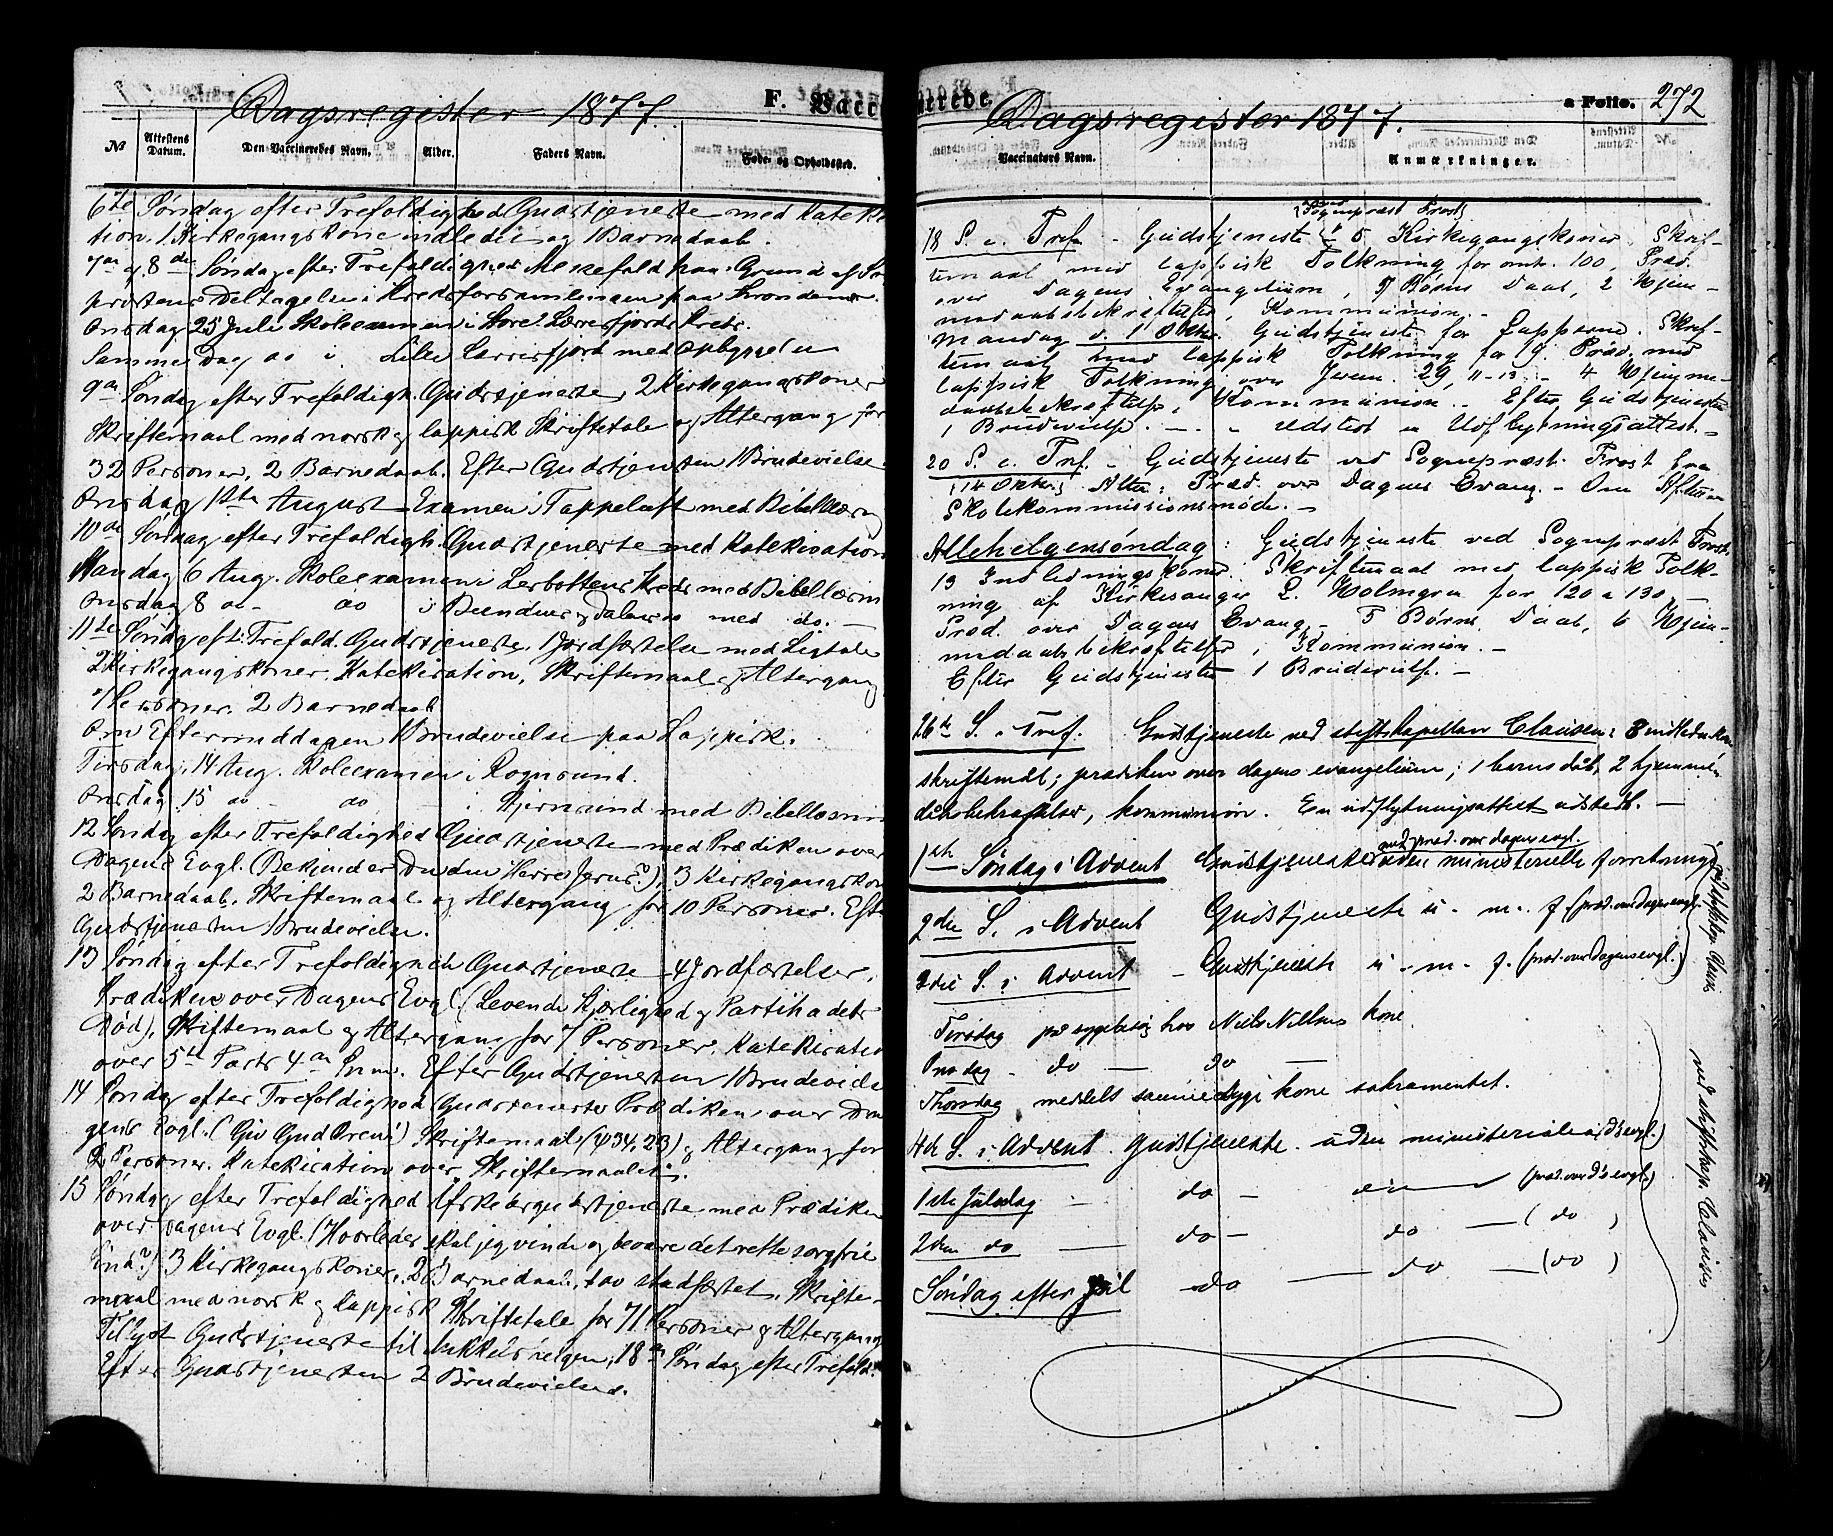 Dagsregister 1877.
F. Vacc
№
Attestens Datum.
Den Vaccineredes Navn.
Alder.
Faders Navn.
Føde- og Opholdssted.
6te Søndag efter Trefoldighed Gudstjeneste med Katekisa
tion. 1 Kirkegangskone indledet og 1 Barnedaab.
7de og 8de Søndag efter Trefoldighed Messefald paa Grund af So
prestens Deltagelse i Kredsforsamlingen paa
Onsdag 25 Juli Skoleexamen i Store Lerresfjords Kreds.
Samme Dag do i Lille Lerresfjord med Opbyggelse
9de Søndag efter Trefoldigh. Gudstjeneste, 2 Kirkegangskoner
Skriftemaal med norsk og lappisk Skriftetale og Altergang for
32 Personer, 2 Barnedaab. Efter Gudstjenesten 1 Brudevielse.
Onsdag 1ste August Examen i Tappeluft med Bibellæsning
10de Søndag efter Trefoldigh. Gudstjeneste med Katekisation
Mandag 6 Aug. Skoleexamen i Lerbottens Kreds med Bibellæsnin
Onsdag 8 do - do i og med do. -
11te Søndag eft. Trefold. Gudstjeneste. 1 Jordfæstelse med Ligtale
2 Kirkegangskoner. Katekisation, Skriftemaal og Altergang
7 Personer. 2 Barnedaab
Om Eftermiddagen 1 Brudevielse paa Lappisk.
Tirsdag, 14 Aug. Skoleexamen i Rognsund.
Onsdag 15 do - do - i Stjernsund med Bibellæsnin
12 Søndag efter Trefoldighed Gudstjeneste med Prædiken over
Dagens Evgl. (Bekjender Du din Herre Jesus?), 3 Kirkegangskon
2 Barnedaab. Skriftemaal og Altergang for 10 Personer. Eft
Gudstjenesten 1 Brudevielse.
13 Søndag efter Trefoldighed Gudstjeneste - 4 Jordfæstelser,
Prædiken over Dagens Evgl. (Levende Kjærlighed og Partihadets
Død), Skriftemaal og Altergang for 7 Personer. Katekisatio
over 5te Parts 4de Efter Gudstjenesten 1 Brudevielse
14 Søndag efter Trefoldighed Gudstjeneste Prædiken over Da
gens Evgl. (Giv Gud Æren!) Skriftemaal (ψ 34, 23) og Altergang for
2 Personer. Katekisation over Skriftemaalet.
15 Søndag efter Trefoldighed Gudstjeneste med Prædiken
over Dagens Evgl. (Hvorledes skal jeg vinde og bevare det rette sorgfrie
Sind?) 3 Kirkegangskoner, 2 Barnedaab, stadfæstet. Skrifte-
maal med norsk og lappisk Skriftetale for 71 Personer og Altergang
Tillyst Gudstjeneste til Mikkelshelgen, 18de Søndag efter Trefold.
Efter Gudstjenesten 2 Brudevielser.
nerede.
Dagsregister 1877.
a Folio. 272
Vaccinators Navn.
Anmærkninger.
ved Sognepræst Frost
18 S. e. Tref. - Gudstjeneste 5 Kirkegangskoner. Skrif-
temaal med lappisk Tolkning for omtr. 100. Præd.
over Dagens Evangelium, 9 Børns Daab, 2 Hjem-
medaabsbekræftelser, Kommunion. -
Mandag d. 1 Oktbr. Gudstjeneste for Lapperne. Skrif-
temaal med lappisk Tolkning for 9. Præd. med
lappisk Tolkning over Jerem. 29, 11-13. - 4 Hjemme-
daabsbekræftelser, Kommunion. - Efter Gudstjenesten
1 Brudevielse. - Udstedt Udflytningsattest. -
20 S. e. Tref. - Gudstjeneste ved Sognepræst Frost fra
(14 Oktbr) Alten: Præd. over Dagens Evang. - Om Aftenen
Skolekommissionsmøde. -
Allehelgensøndag: Gudstjeneste ved Sognepræst Frost.
13 Indledningskoner. Skriftemaal med lappisk Tolk-
ning af Kirkesanger L. Holmgren for 120 a 130. -
Præd. over Dagens Evang. - 5 Børns Daab, 6 Hjem-
medaabsbekræftelser, Kommunion. -
Efter Gudstjenesten 1 Brudevielse. -
26de S. e. Tref. Gudstjeneste ved stiftskapellan Clausen: 3
skriftemål; prædiken over dagens evangelium; 1 barnedåb, 2 hjemme
dåbsbekræftelser, kommunion. En udflytningsattest udstedt. -
med præd. over dagens evgl.
1ste Søndag i Advent Gudstjeneste uden ministerielle forretninger
2den S. i Advent Gudstjeneste u. m. f. (præd. over dagens evgl.
3die S. i Advent - Gudstjeneste u. m. f. (præd. over Dagens evgl.)
Tirsdag på sygebesøg hos Niels Nilsens kone
Onsdag - do - do -
Thorsdag meddelt samme syge kone sakramentet.
4de S. i Advent. Gudstjeneste uden ministeriale
1ste Juledag - do - do - (præd. over d's evgl.)
2den do - do - do - (do)
Søndag efter jul do - do - (do)
ved stiftskap. Clausen
ved stiftskap. Clausen